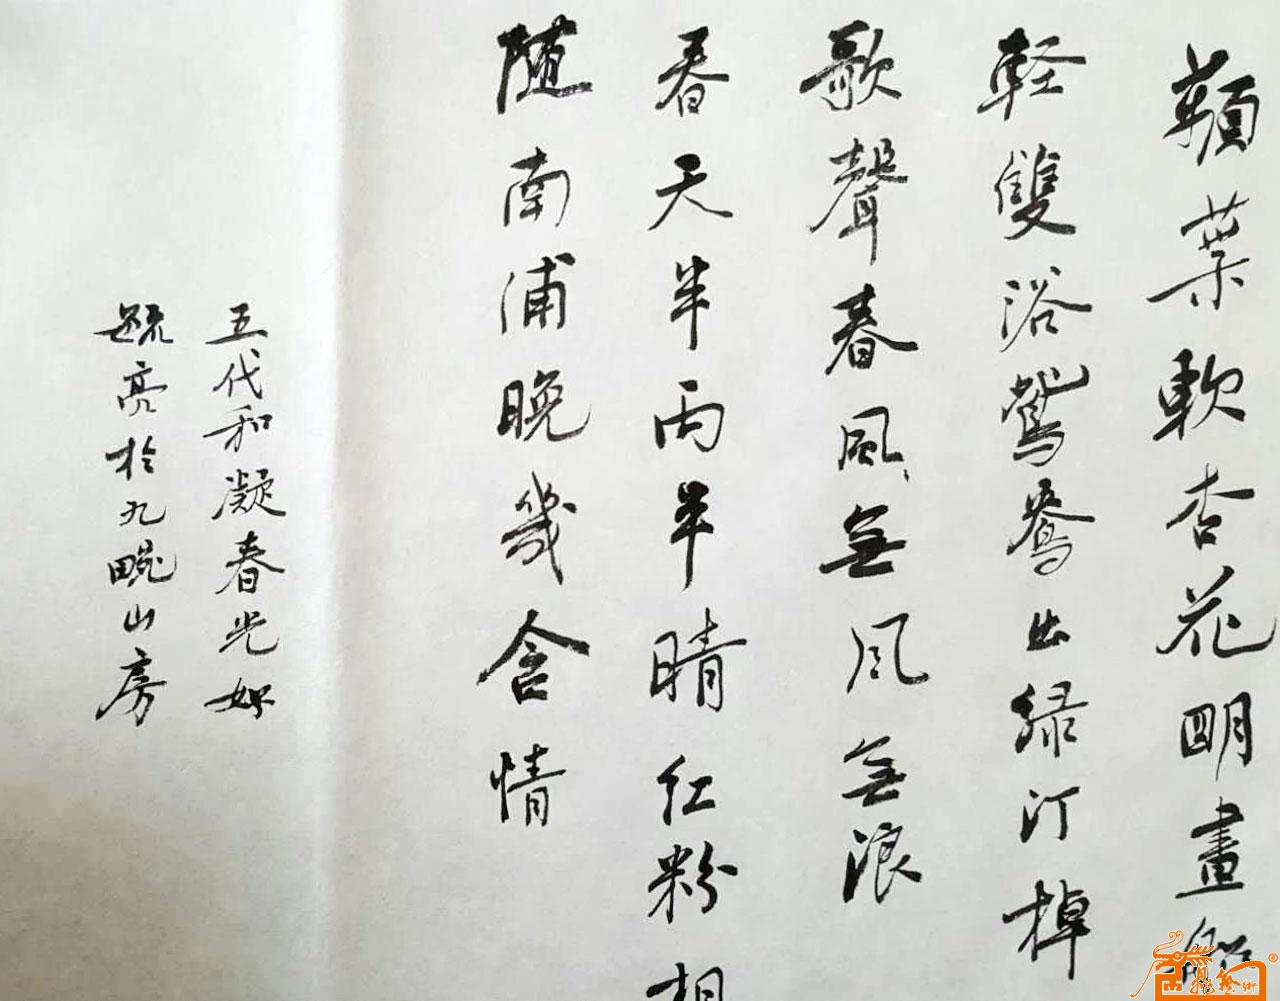 蘋葉軟杏花明畫船
軽雙浴鴛鴦出緑汀棹
歌聲春風無風無浪
春天半雨半晴紅粉相
随南浦晚幾含情
五代和凝春光好
毓亮於九畹山房